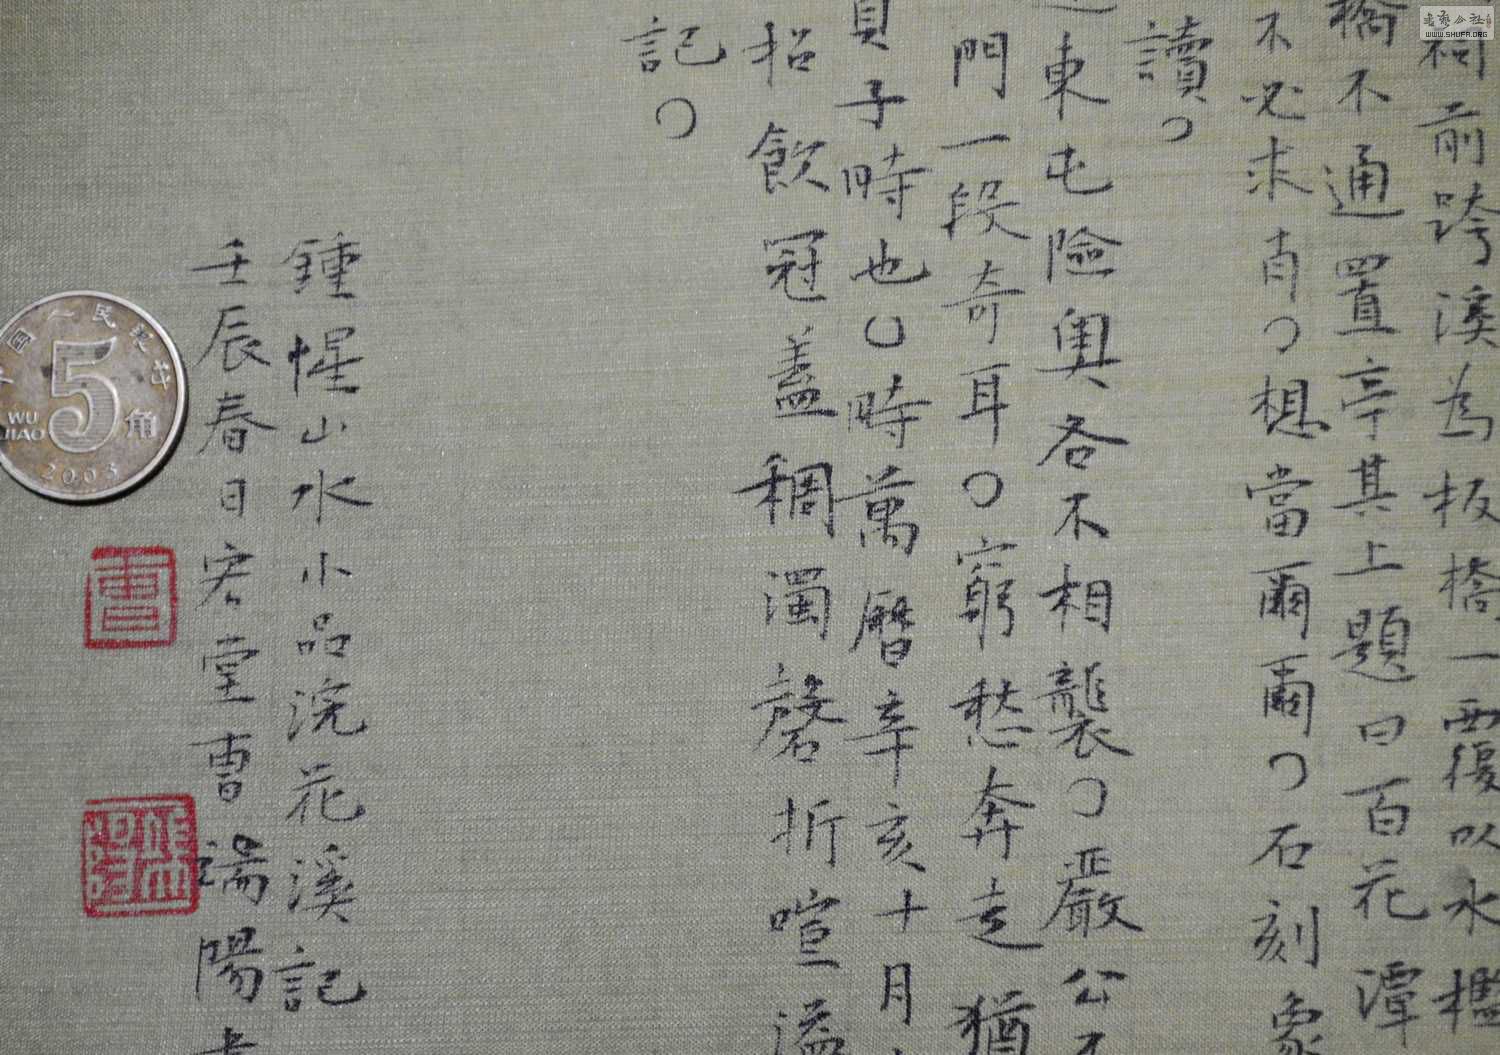 祠前跨溪為板橋一覆以水檻
橋不通置亭其上題曰百花潭
不必求肖。想當爾爾。石刻象
讀。
東屯險奧各不相襲。嚴公不
門一段奇耳。窮愁奔走猶
貞子時也。時萬曆辛亥十月
招飲冠蓋稠濁磬折喧溢
記。
鍾惺山水小品浣花溪記
壬辰春日宏堂曹端陽書
曹
中国人民银行
5角
WU JIAO
2003
WWW.SHUFA.ORG